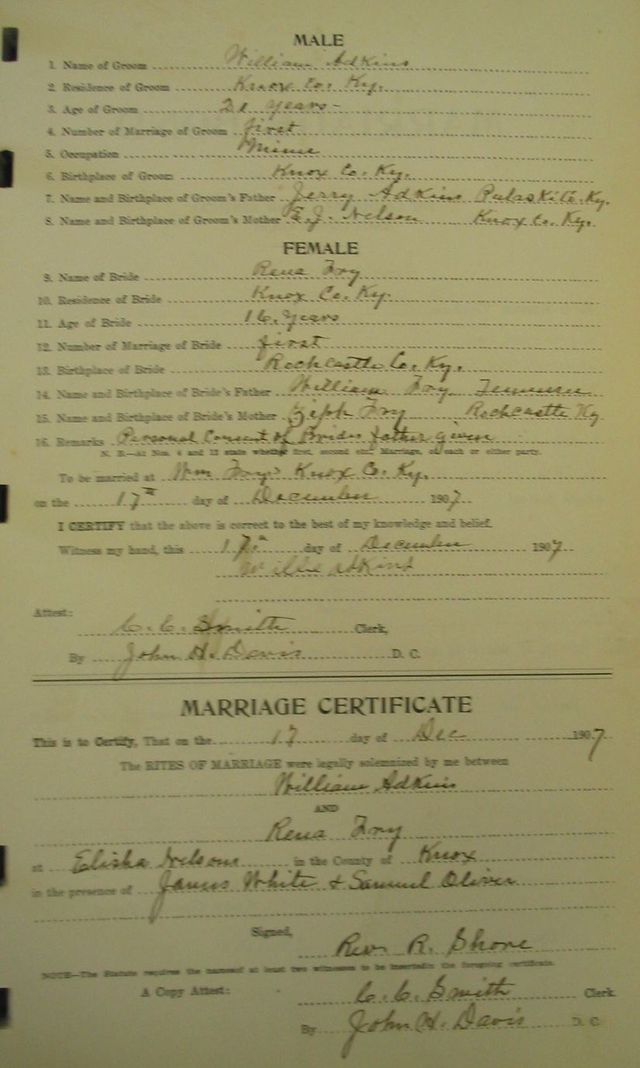 MALE
1. Name of Groom William Adkins
2. Residence of Groom Knox Co. Ky.
3. Age of Groom 21 years
4. Number of Marriage of Groom first
5. Occupation
6. Birthplace of Groom Knox Co. Ky.
7. Name and Birthplace of Groom's Father Jerry Adkins Pulaski Co. Ky.
8. Name and Birthplace of Groom's Mother E. J. Nelson Knox Co. Ky.
FEMALE
9. Name of Bride Rena Fry
10. Residence of Bride Knox Co. Ky.
11. Age of Bride 16 years
12. Number of Marriage of Bride first
13. Birthplace of Bride Rockcastle Co. Ky.
14. Name and Birthplace of Bride's Father William Fry
15. Name and Birthplace of Bride's Mother Fry Rockcastle Ky
16. Remarks Personal Consent of Brides father given
N. B.—At Nos. 4 and 12 state whether first, second etc. Marriage, of each or either party.
To be married at Wm Fry's Knox Co. Ky.
on the 17th day of December 1907
I CERTIFY that the above is correct to the best of my knowledge and belief.
Witness my hand, this 17th day of December 1907
Willie Adkins
Attest:
C. C. Smith Clerk,
By John H. Davis D. C.
MARRIAGE CERTIFICATE
This is to Certify, That on the 17 day of Dec 1907
The RITES OF MARRIAGE were legally solemnized by me between
William Adkins
AND
Rena Fry
at Elisha Nelsons in the County of Knox
in the presence of James White & Samuel Oliver
Signed,
Rev. R. Shore
NOTE—The Statute requires the names of at least two witnesses to be inserted in the foregoing certificate.
A Copy Attest:
C. C. Smith Clerk
By John H. Davis D. C.